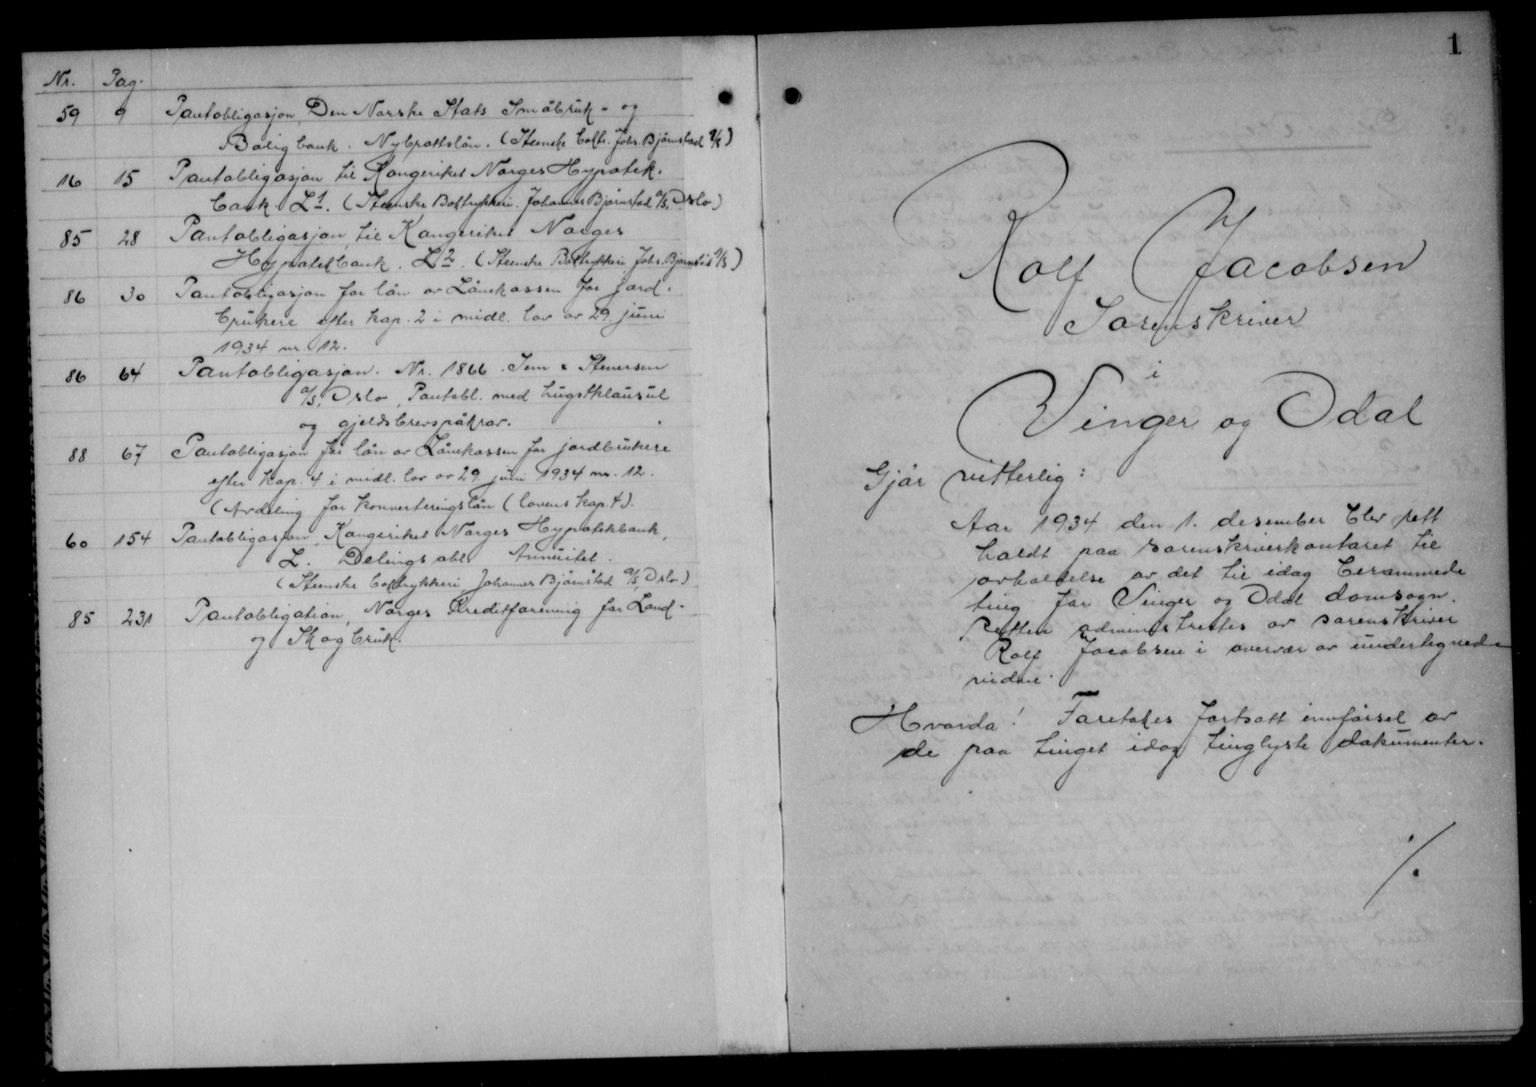 Nr. Pag.
59 9 Pantobligasjon, Den Norske Stats Småbruk- og
Boligbank. Nybrottslån. (Steenske boktr. Johs. Bjørnstad A/S)
16 15 Pantobligasjon til Kongeriket Norges Hypotek-
bank. L1. (Steenske Boktrykkeri. Johannes Bjørnstad A/S, Oslo)
85 28 Pantobligasjon til Kongeriket Norges
Hypotekbank. L2. (Steenske Boktrykkeri Johs. Bjørnstad A/S)
86 30 Pantobligasjon for lån av Lånekassen for jord-
brukere efter kap. 2 i midl. lov av 29. juni
1934 nr. 12.
86 64 Pantobligasjon. Nr. 1866. Sem & Stenersen
A/S, Oslo, Pantobl. med tingstklausul
og gjeldsbrevspåkrav.
88 67 Pantobligasjon for lån av Lånekassen for jordbrukere
efter kap. 4 i midl. lov av 29. juni 1934 nr. 12.
(Avdeling for konverteringslån (lovens kap. 4).
60 154 Pantobligasjon, Kongeriket Norges Hypotekbank,
L. Delings obl. Annuitet.
(Steenske boktrykkeri Johannes Bjørnstad A/S, Oslo)
85 231 Pantobligation, Norges Kreditforening for Land-
og Skogbruk.
1
Rolf Jacobsen
Sorenskriver
i
Vinger og Odal
Gjør vitterlig:
Aar 1934 den 1. desember blev rett
holdt paa sorenskriverkontoret til
avholdelse av det til idag berammede
ting for Vinger og Odal domsogn.
Retten administrertes av sorenskriver
Rolf Jacobsen i overvær av undertegnede
vidne.
Hvorda! Foretokes fortsatt innførsel av
de paa tinget idag tinglyste dokumenter.
./.